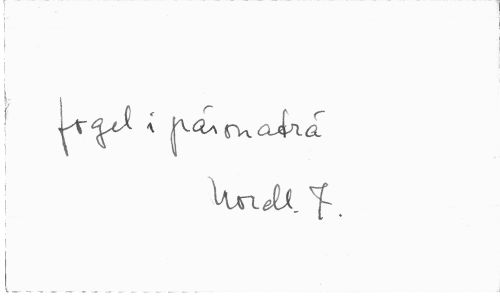 fogel i päronaträ
Nordl. F.